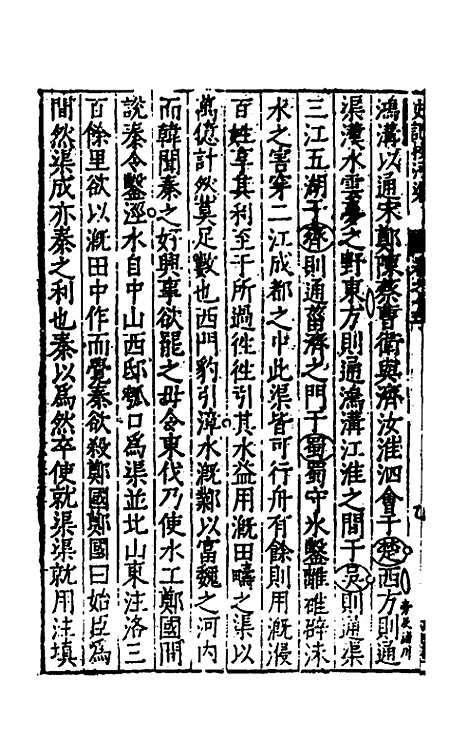 鴻溝以通宋鄭陳蔡曹衛與濟汝淮泗會于楚西方則通
渠漢水雲夢之野東方則通鴻溝江淮之間于吳則通渠
三江五湖于齊則通菑濟之門于蜀蜀守氷鑿離碓辟沫
水之害穿二江成都之中此渠皆可行舟有餘則用溉浸
百姓享其利至于所過徃徃引其水益用溉田疇之渠以
萬億計然莫足數也西門豹引漳水溉鄴以富魏之河内
而韓聞秦之好興事欲罷之毋令東伐乃使水工鄭國間
說秦令鑿涇水自中山西邸瓠口為渠並北山東注洛三
百餘里欲以溉田中作而覺秦欲殺鄭國鄭國曰始臣為
間然渠成亦秦之利也秦以為然卒使就渠渠就用注填